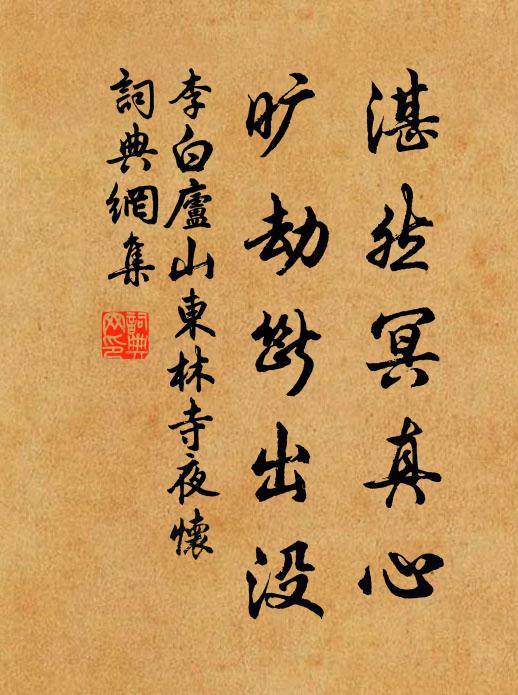 湛然冥真心
旷劫断出没
李白廬山東林寺夜懷
詞典網集
詞典網印